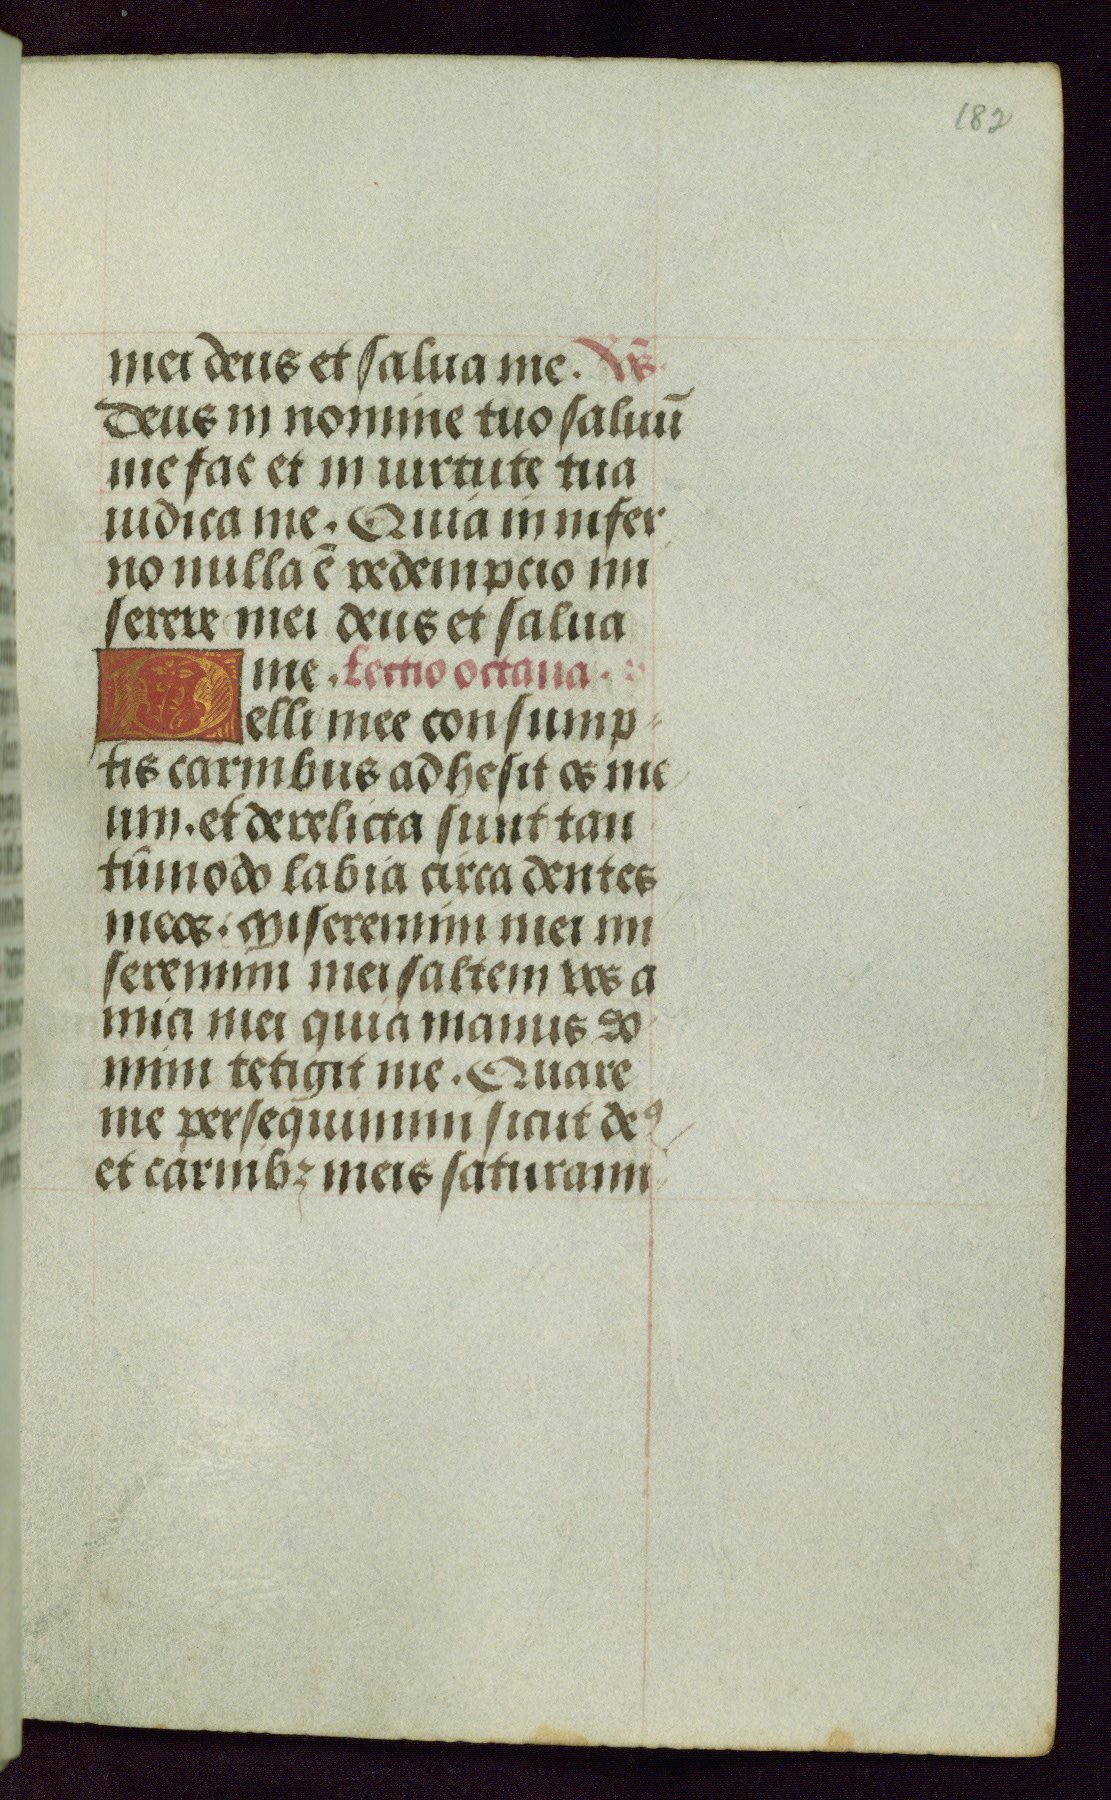 182
mei deus et salua me. Vs.
Deus in nomine tuo saluū
me fac et in uirtute tua
iudica me. Quia in infer
no nulla ē redempcio mi
serere mei deus et salua
me. Lectio octaua.
Pelli mee consump-
tis carnibus adhesit os me
um. et derelicta sunt tan
tūmodo labia circa dentes
meos. Miseremini mei mi
seremini mei saltem uos a
mici mei quia manus do
mini tetigit me. Quare
me persequimini sicut deꝰ
et carnibꝫ meis saturami